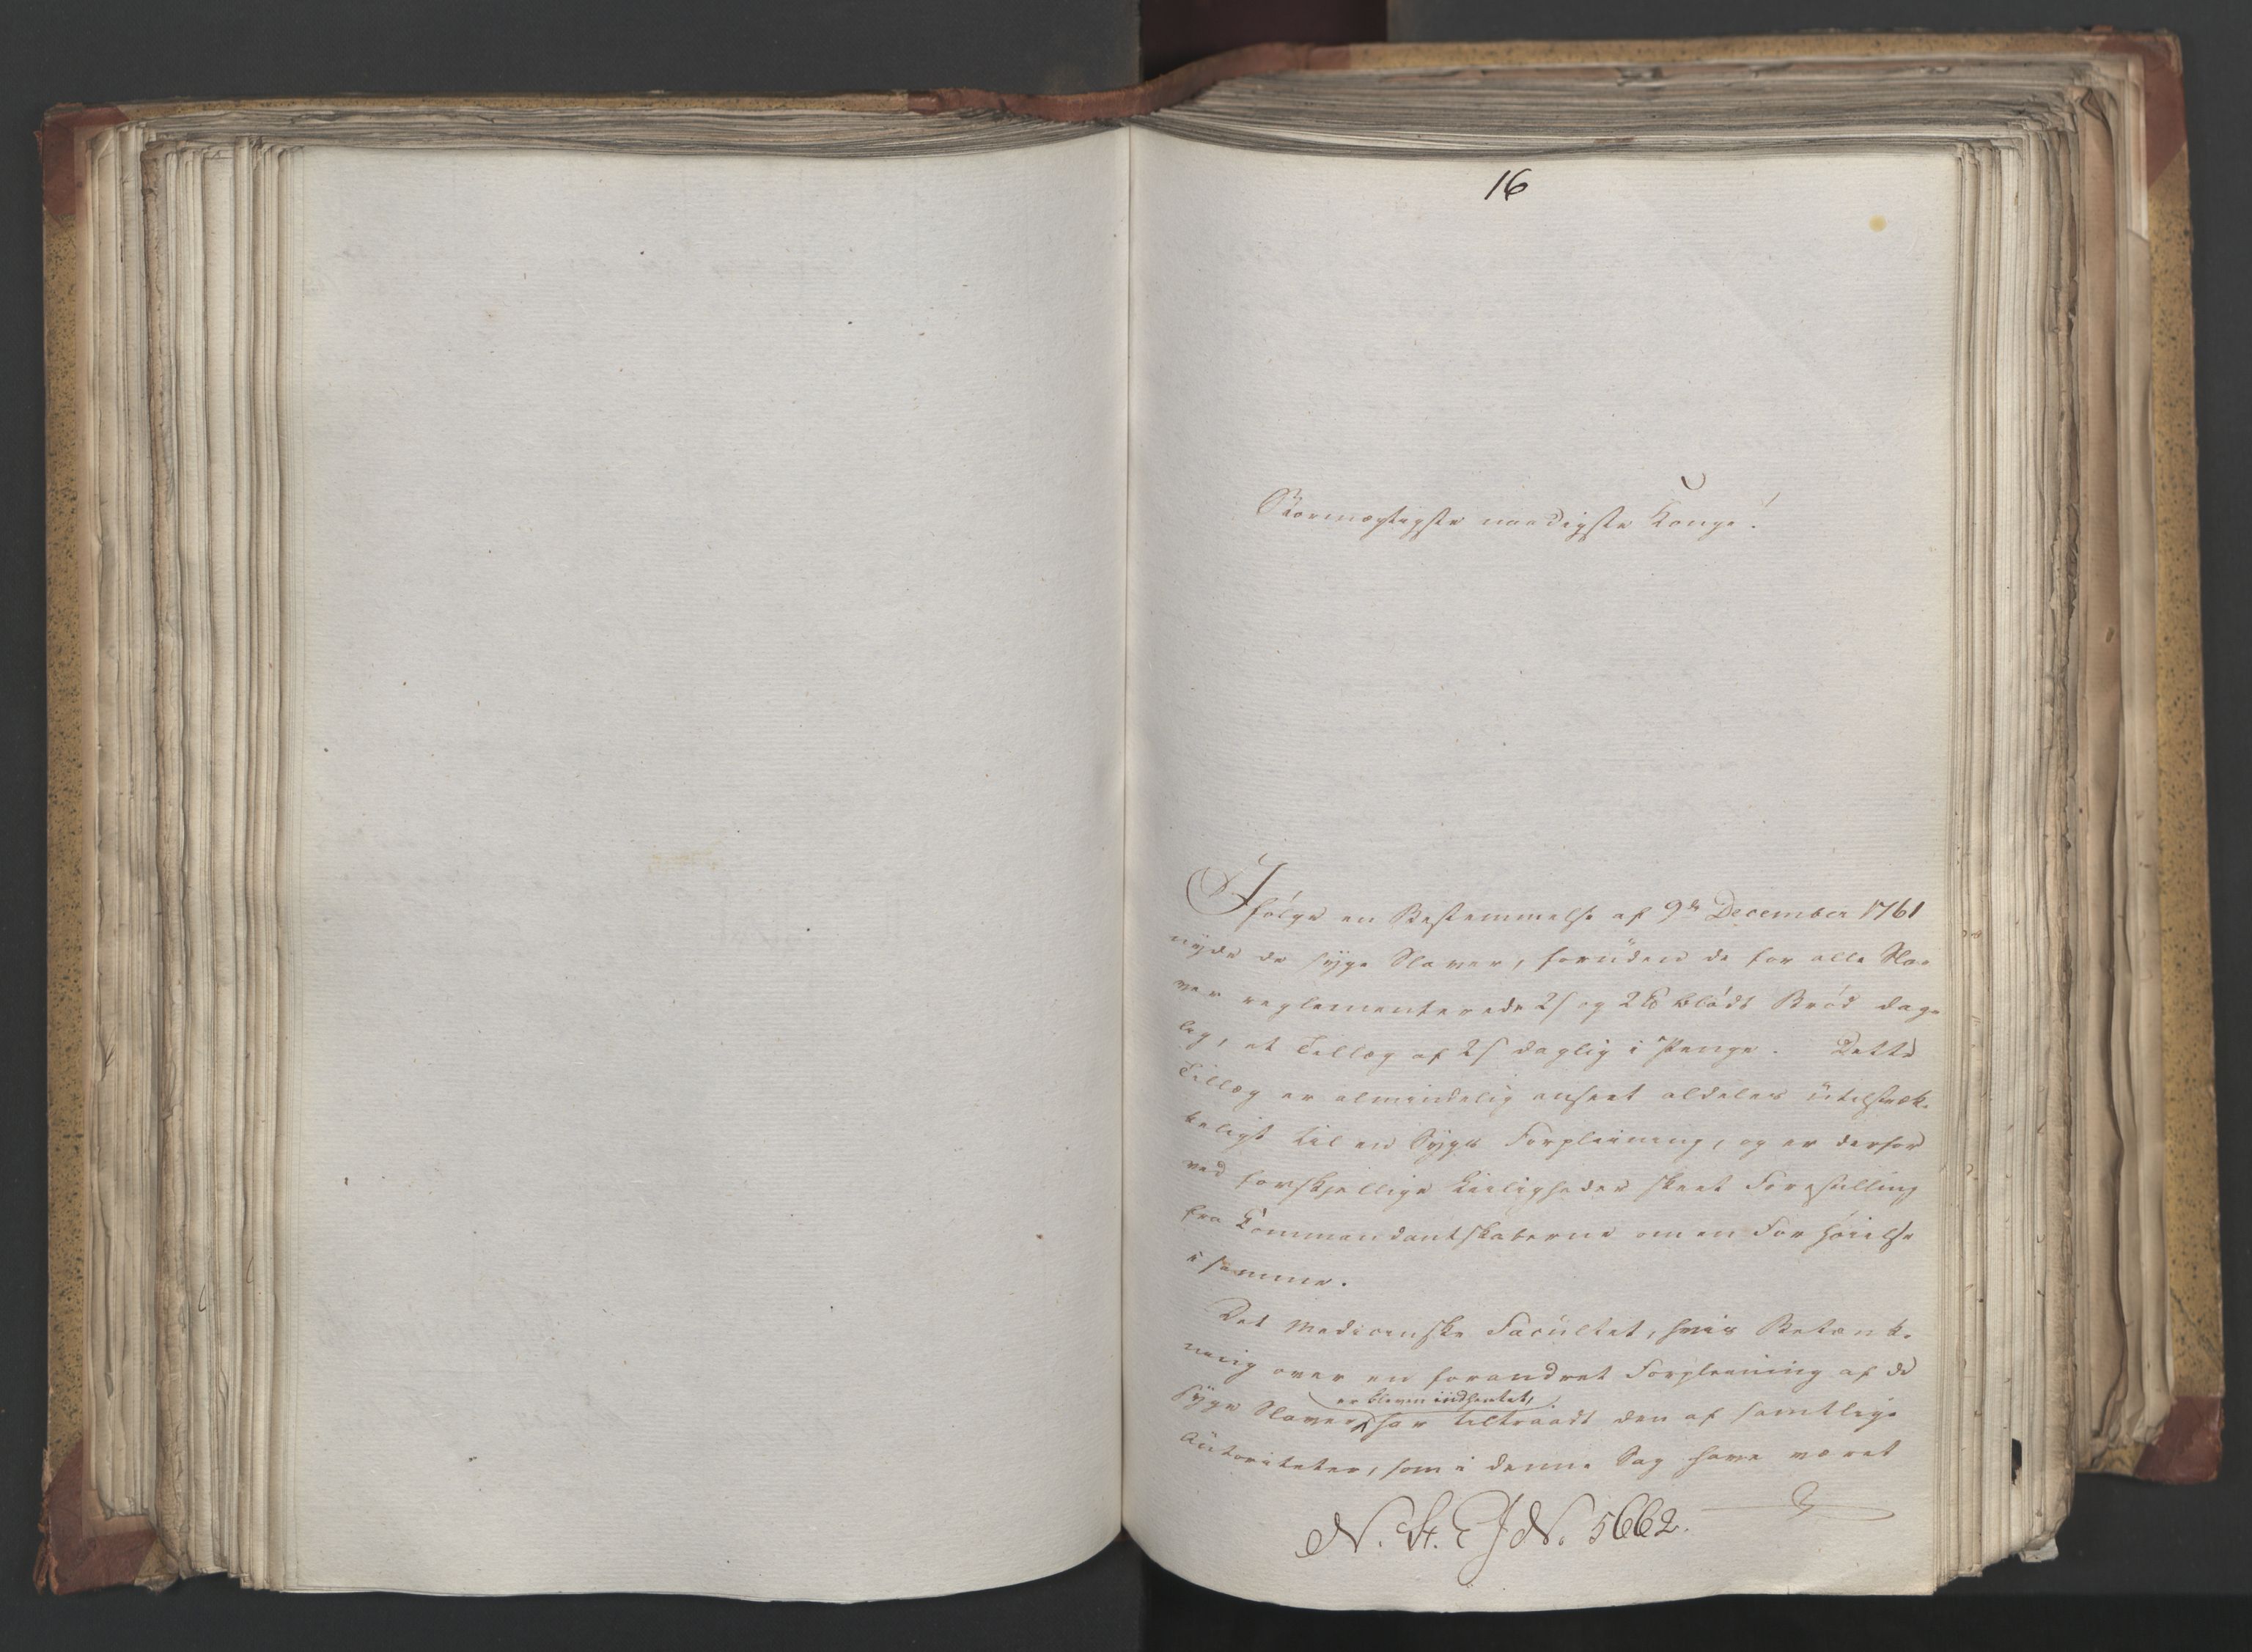 16
Stormægtigste naadigste Konge!
Ifölge en Bestemmelse af 9de December 1761
nyde de syge Slaver, foruden de for alle Sla-
ver reglementerede 2 s og 2 ℔ blödt Bröd dag-
lig, et Tillæg af 2 s daglig i Penge. Dette
Tillæg er almindelig anseet aldeles utilstræk-
keligt til en Sygs Forpleining, og er derfor
ved forskjellige Leiligheder skeet Forestilling
fra Commandantskaberne om en Forhöielse
i samme.
Det medicinske Facultet, hvis Betænk-
ning over en forandret Forpleining af de
er bleven indhentet,
syge Slaver har tiltraadt den af samtlige
Autoriteter, som i denne Sag have været
N. 5662.